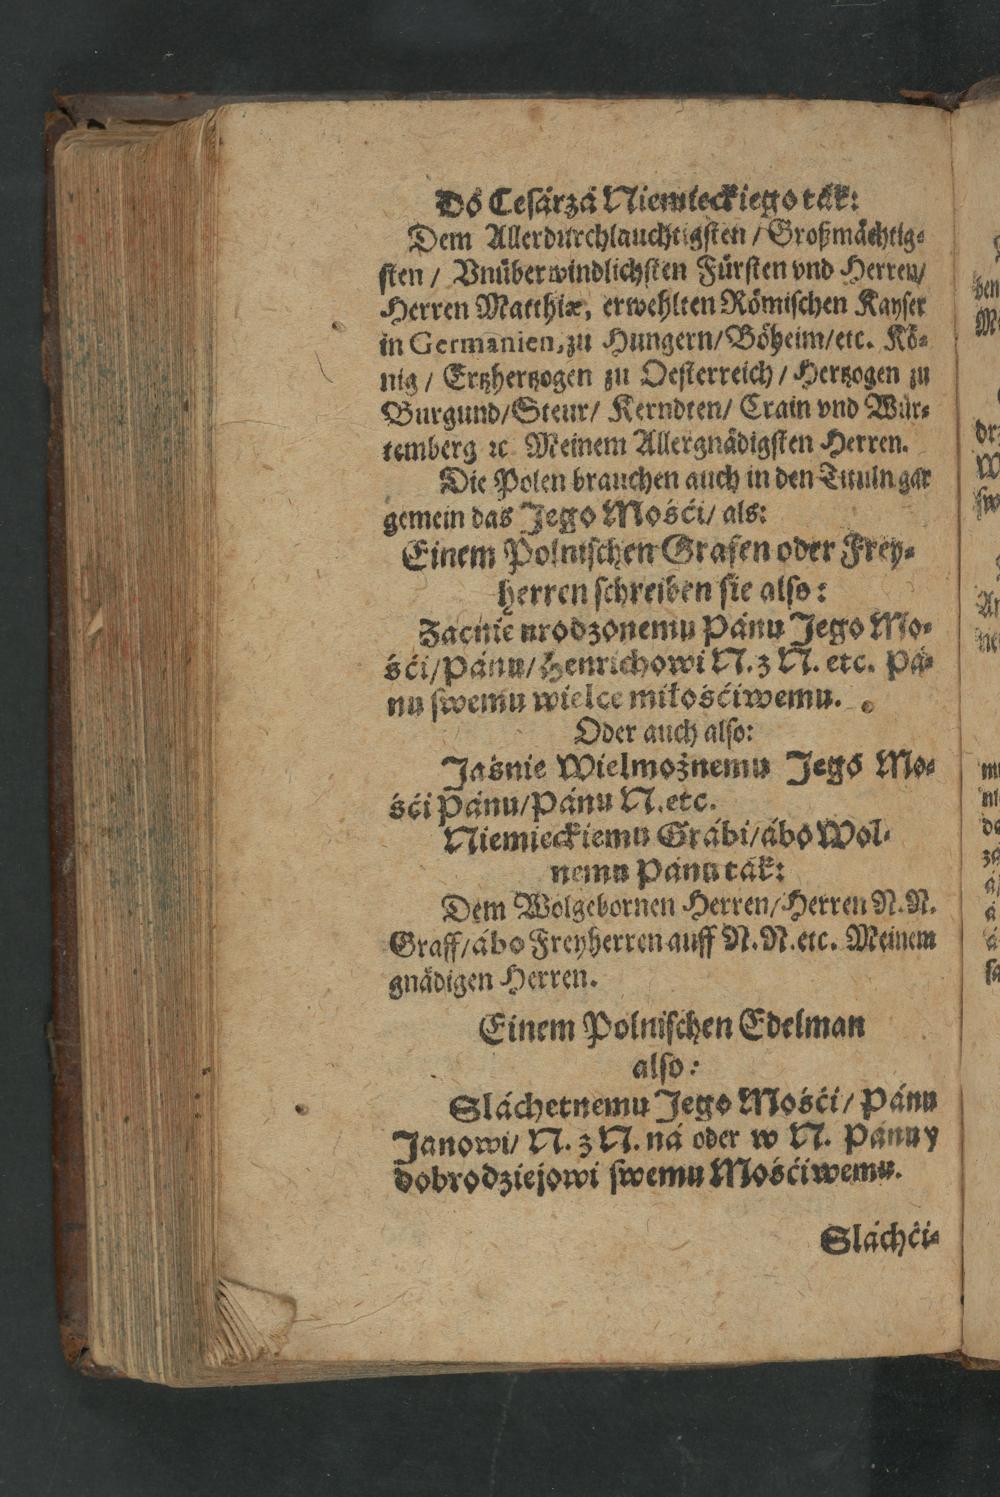 Do Cesárzá Niemieckiego ták:
Dem Allerdurchlauchtigsten / Großmächtig⸗
sten / Vnüberwindlichsten Fürsten vnd Herren/
Herren Matthiæ, erwehlten Römischen Kayser
in Germanien, zu Hungern/Böheim/etc. Kö⸗
nig / Ertzhertzogen zu Oesterreich / Hertzogen zu
Burgund/Steur/ Kerndten/ Crain vnd Wür⸗
temberg ꝛc Meinem Allergnädigsten Herren.
Die Polen brauchen auch in den Tituln gar
gemein das Jego Mośći/ als:
Einem Polnischen Grafen oder Frey⸗
herren schreiben sie also:
Zacnie urodzonemu Pánu Jego Mo⸗
śći/Pánu/Henrichowi N. z N. etc. Pá⸗
nu swemu wielce miłośćiwemu.
Oder auch also:
Jaśnie Wielmożnemu Jego Mo⸗
śći Pánu/Pánu N. etc.
Niemieckiemu Grábi/ábo Wol⸗
nemu Pánu ták:
Dem Wolgebornen Herren/Herren N. N.
Graff/ábo Freyherren auff N. N. etc. Meinem
gnädigen Herren.
Einem Polnischen Edelman
also:
Sláchetnemu Jego Mośći/ Pánu
Janowi/ N. z N. ná oder w N. Pánu y
dobrodziejowi swemu Mośćiwemu.
Sláchći⸗